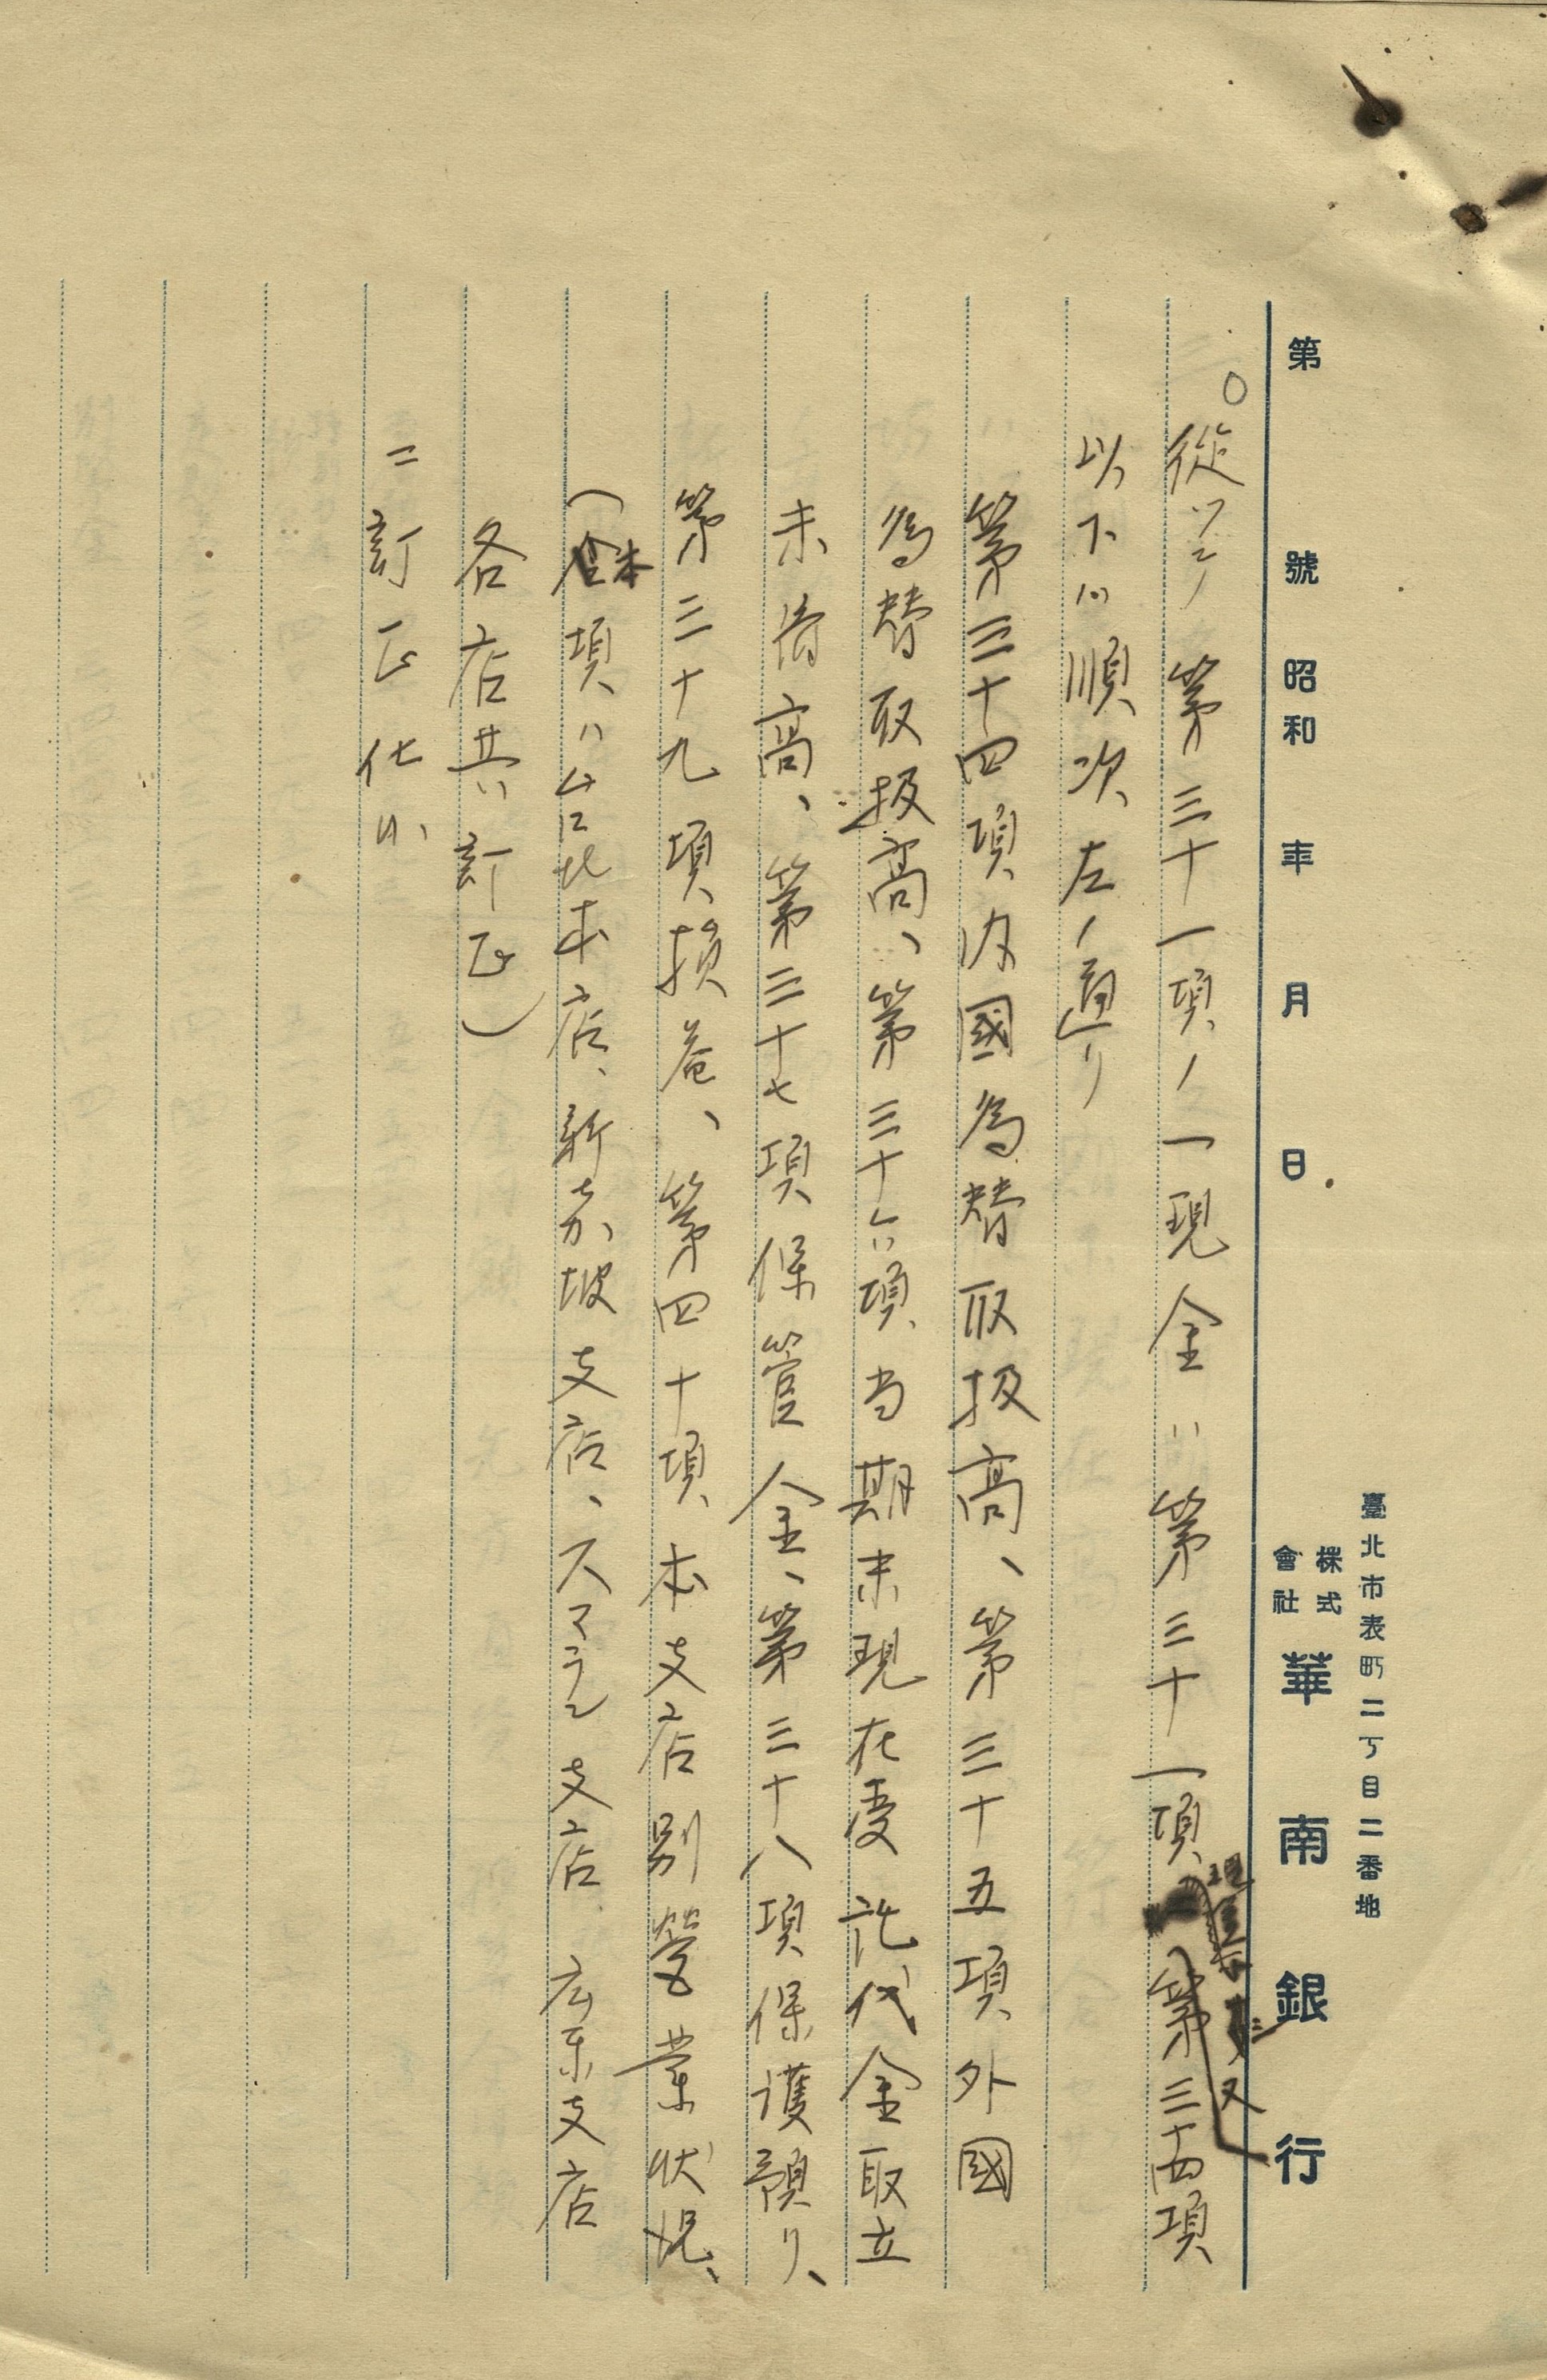 臺北市表町二丁目二番地
株式會社 華南銀行
第 號 昭和 年 月 日
○從ツテ第三十一項ノ一現金ハ第三十一項 現金 又第三十四項
以下ハ順次左ノ通リ
第三十四項内國為替取扱高、第三十五項外國
為替取扱高、第三十六項当期末現在受託代金取立
未済高、第三十七項保管金、第三十八項保護預リ、
第三十九項損益、第四十項本支店別營業状況、
(本項ハ台北本店、新嘉坡支店、スマラン支店、広東支店
各店共訂正)
ニ訂正仕候